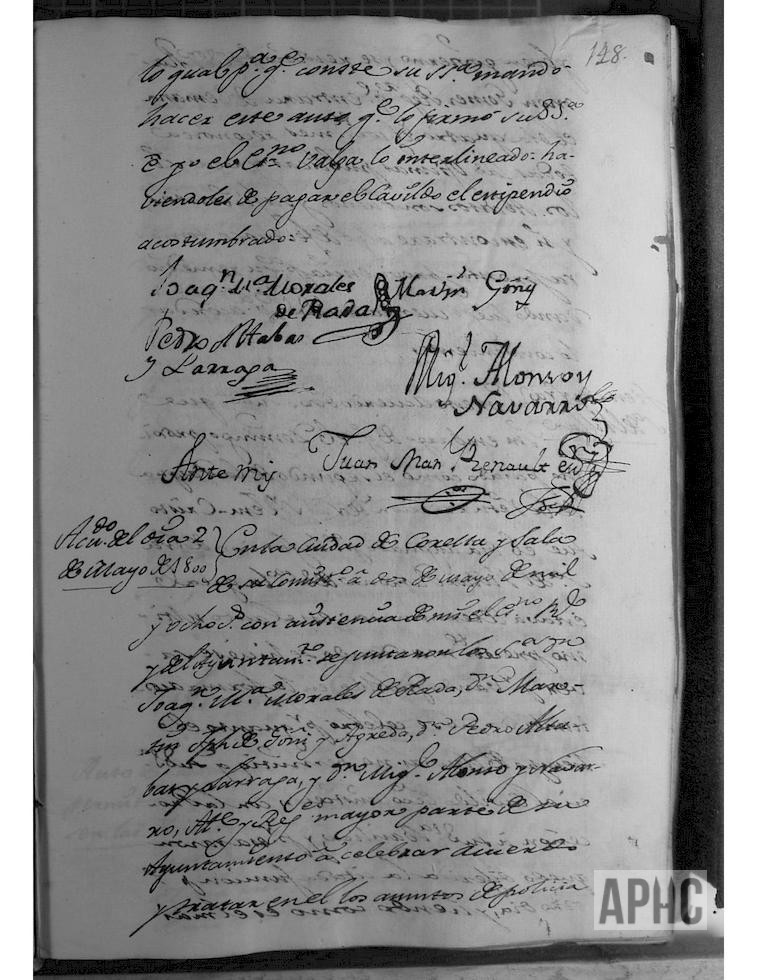 148.
lo qual p.ª q.e conste su S.ª mandó
hacer este auto q.e lo firmó su S.S.ª
è yo el Es.no valga lo interlineado: ha-
viendoles de pagar el Cavildo el estipendio
acostumbrado:
Joaq.n M.ª Morales
de Rada
Martin Goñi
Pedro Altabas
y Larraga
Mig.l Alonso y
Navarro
Ante mi
Juan Man.l Renault
Acu.do del dia 2
de Mayo de 1800
En la Ciudad de Corella y Sala
de su Consist.o à dos de Mayo de mil
y ocho c.s con asistencia de mi el Es.no R.l
y del Ayuntam.to se juntaron los S.es d.n
Joaq.n M.ª Morales de Rada, d.n Mar-
tin Jph de Goñi y Agreda, d.n Pedro Alta-
bas y Larraga, y d.n Mig.l Alonso y Navar-
ro, Al.e y Reg.es mayor parte de su
Ayuntamiento à celebrar acuerdo
y tratar en el los asuntos de policia
APHC